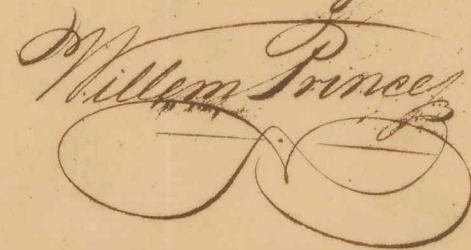 Willem Prince